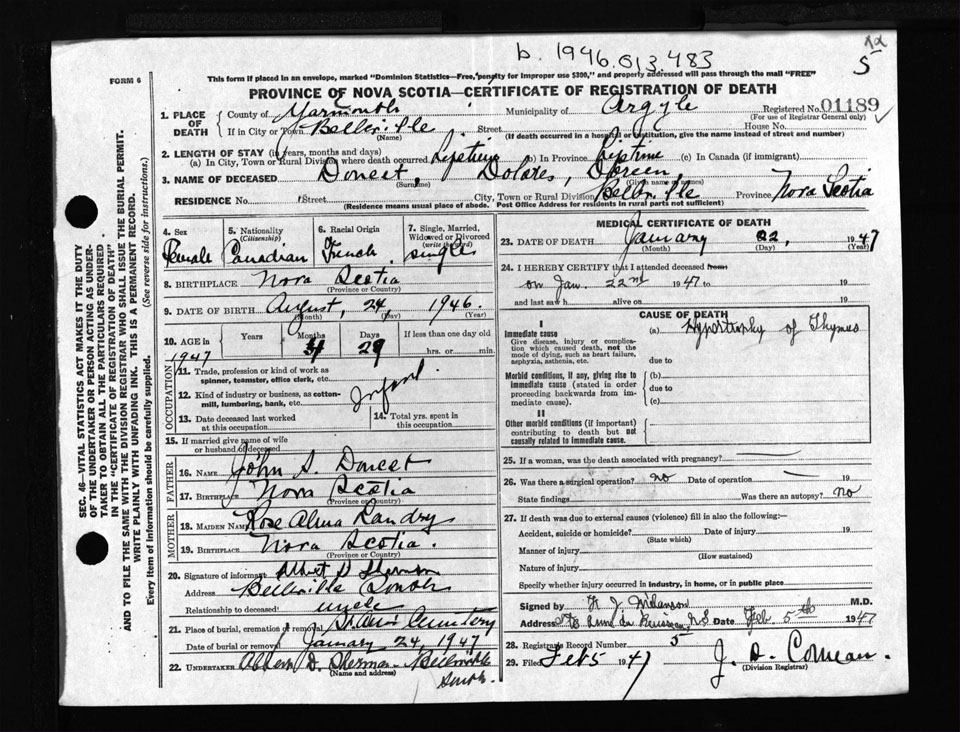 b. 1946.013483
12
5
FORM 6
This form if placed in an envelope, marked "Dominion Statistics—Free, penalty for improper use $300," and properly addressed will pass through the mail "FREE"
PROVINCE OF NOVA SCOTIA—CERTIFICATE OF REGISTRATION OF DEATH
1. PLACE OF DEATH
County of Yarmouth Municipality of Argyle Registered No. 01189
(For use of Registrar General only)
If in City or Town Belleville Street House No.
(Name) (If death occurred in a hospital or institution, give the name instead of street and number)
2. LENGTH OF STAY (in years, months and days)
(a) In City, Town or Rural Division where death occurred Lifetime (b) In Province Lifetime (c) In Canada (if immigrant)
3. NAME OF DECEASED Doucet, Dolores, Doreen,
(Surname) (Given name or names)
RESIDENCE No. Street City, Town or Rural Division Belleville Province Nova Scotia
(Residence means usual place of abode. Post Office Address for residents in rural parts not sufficient)
4. Sex
Female
5. Nationality (Citizenship)
Canadian
6. Racial Origin
French
7. Single, Married, Widowed or Divorced (write the word)
single
8. BIRTHPLACE Nova Scotia
(Province or Country)
9. DATE OF BIRTH August, 24 1946.
(Month) (Day) (Year)
10. AGE in Years Months Days If less than one day old
4 29 hrs. or min.
1947
OCCUPATION
11. Trade, profession or kind of work as spinner, teamster, office clerk, etc.
Infant.
12. Kind of industry or business, as cotton-mill, lumbering, bank, etc.
13. Date deceased last worked at this occupation
14. Total yrs. spent in this occupation
15. If married give name of wife or husband of deceased
FATHER
16. NAME John S. Doucet
17. BIRTHPLACE Nova Scotia
(Province or Country)
MOTHER
18. MAIDEN NAME Rose Alma Landry
19. BIRTHPLACE Nova Scotia.
(Province or Country)
20. Signature of informant Albert D Sherman
Address Belleville South
Relationship to deceased uncle
21. Place of burial, cremation or removal Cemetery
Date of burial or removal January 24, 1947
22. UNDERTAKER Albert D. Sherman Belleville South.
(Name and address)
MEDICAL CERTIFICATE OF DEATH
23. DATE OF DEATH January 22, 1947
(Month) (Day)
24. I HEREBY CERTIFY that I attended deceased from
on Jan. 22nd 1947 to 19
and last saw h alive on 19
CAUSE OF DEATH
I
Immediate cause
Give disease, injury or complication which caused death, not the mode of dying, such as heart failure, asphyxia, asthenia, etc.
(a) Hypertrophy of Thymus
due to
Morbid conditions, if any, giving rise to immediate cause (stated in order proceeding backwards from immediate cause).
(b)
due to
(c)
II
Other morbid conditions (if important) contributing to death but not causally related to immediate cause.
25. If a woman, was the death associated with pregnancy?
26. Was there a surgical operation? no Date of operation 19
State findings Was there an autopsy? no
27. If death was due to external causes (violence) fill in also the following:—
Accident, suicide or homicide? Date of injury 19
(State which)
Manner of injury
(How sustained)
Nature of injury
Specify whether injury occurred in industry, in home, or in public place
Signed by M.D.
Address N.S. Date Feb. 5th 1947
28. Registrar's Record Number 5
29. Filed Feb 5 1947 J. D. Comeau.
(Division Registrar)
SEC. 46—VITAL STATISTICS ACT MAKES IT THE DUTY OF THE UNDERTAKER OR PERSON ACTING AS UNDERTAKER TO OBTAIN ALL THE PARTICULARS REQUIRED IN THE "CERTIFICATE OF REGISTRATION OF DEATH" AND TO FILE THE SAME WITH THE DIVISION REGISTRAR WHO SHALL ISSUE THE BURIAL PERMIT.
WRITE PLAINLY WITH UNFADING INK. THIS IS A PERMANENT RECORD.
Every item of information should be carefully supplied. (See reverse side for instructions.)